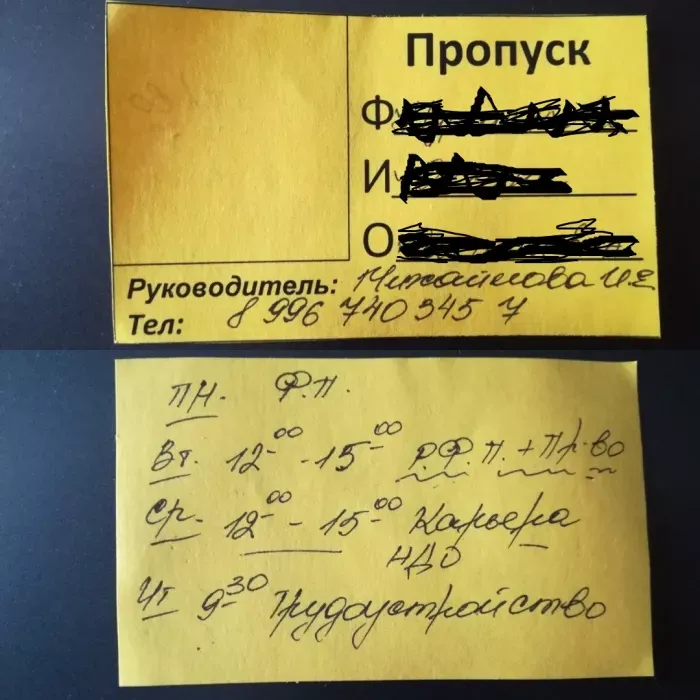 Пропуск
Ф
И
О
Руководитель: Михайлова И.Е
Тел: 8 996 740 345 7
ПН. Ф.П.
Вт. 12-00 - 15-00 Р.Ф.П. + Пр-во
Ср. 12-00 - 15-00 Карьера
НДО
Чт 9-30 Трудоустройство